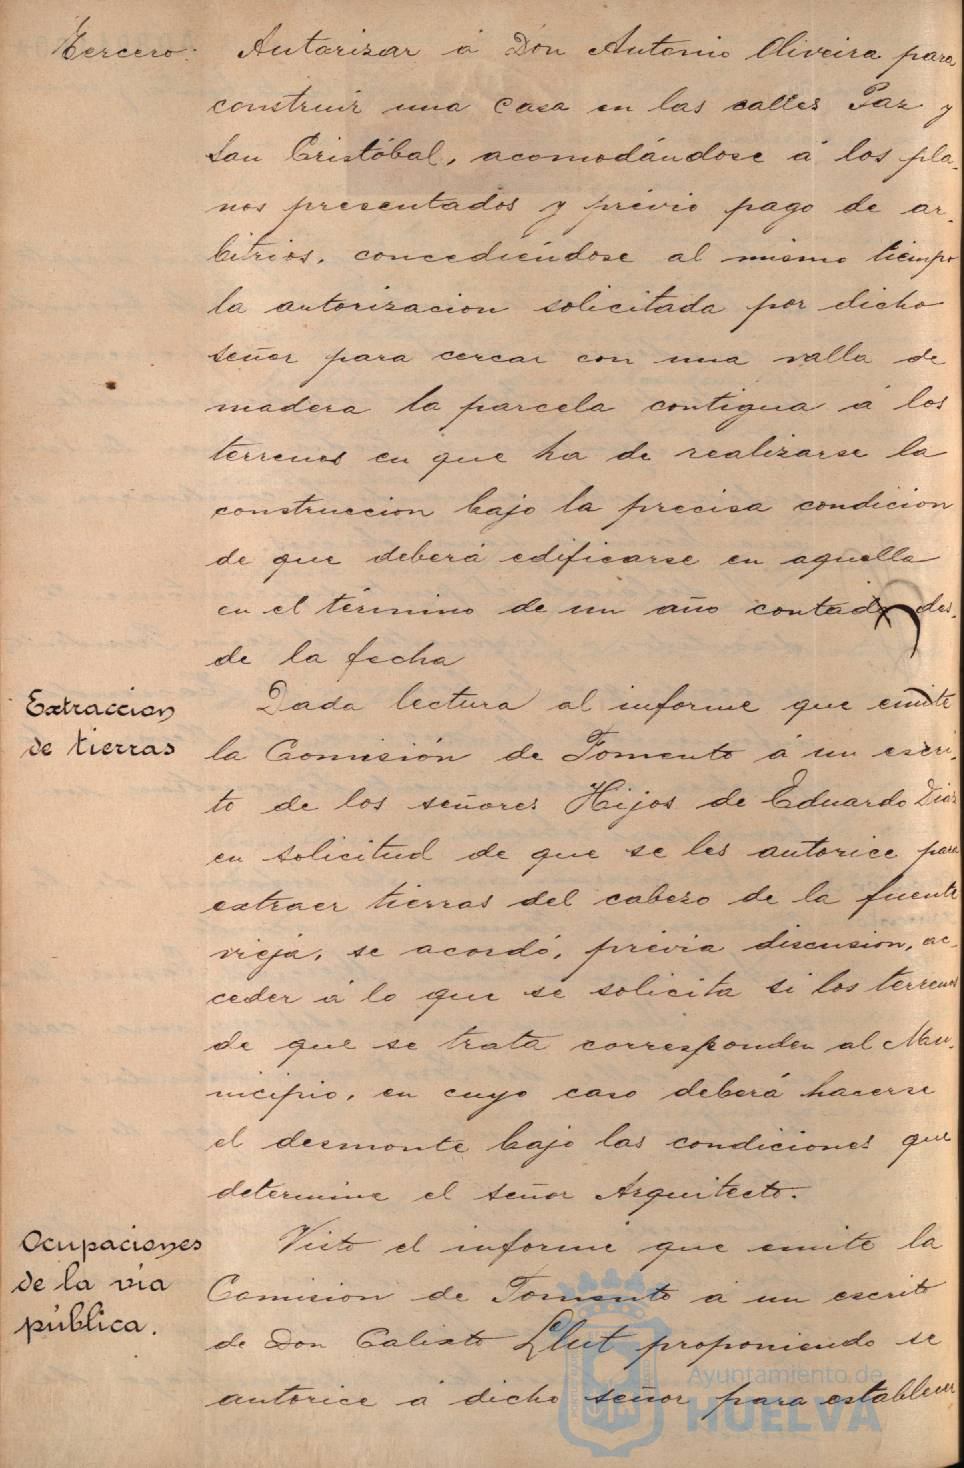 Tercero. Autorizar á Don Antonio Oliveira para
construir una casa en las calles Paz y
San Cristóbal, acomodándose á los pla-
nos presentados y prévio pago de ar-
bitrios, concediéndose al mismo tiempo
la autorizacion solicitada por dicho
señor para cercar con una valla de
madera la parcela contigua á los
terrenos en que ha de realizarse la
construccion bajo la precisa condicion
de que deberá edificarse en aquella
en el término de un año contado des-
de la fecha
Extraccion
de tierras
Dada lectura al informe que emite
la Comisión de Fomento á un escri-
to de los señores Hijos de Eduardo Diaz
en solicitud de que se les autorice para
extraer tierras del cabezo de la fuente
vieja, se acordó, prévia discusion, ac-
ceder á lo que se solicita si los terrenos
de que se trata corresponden al Mu-
nicipio, en cuyo caso deberá hacerse
el desmonte bajo las condiciones que
determine el señor Arquitecto.
Ocupaciones
de la via
pública.
Visto el informe que emite la
Comision de Fomento á un escrito
de Don Calixto Llut proponiendo se
autorice á dicho señor para establecer
Ayuntamiento de
HUELVA